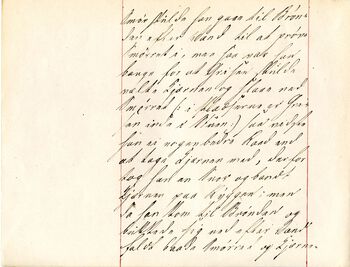 Smör skulde han gaae til Brön-
den efter Vand til at pröve
Smörret i, men saa var han
bange for at Grisen skulde
vælte Kjærnen og slaae ned
Smörret (: i
inde i :) saa vidste
han ei nogen bedre Raad end
at tage Kjærnen med, derfor
tog han en Snor og bandt
Kjærnen paa Ryggen: men
da han kom til Brönden og
bukkede sig ned efter Vand
faldt baade Smörret og Kjærne-